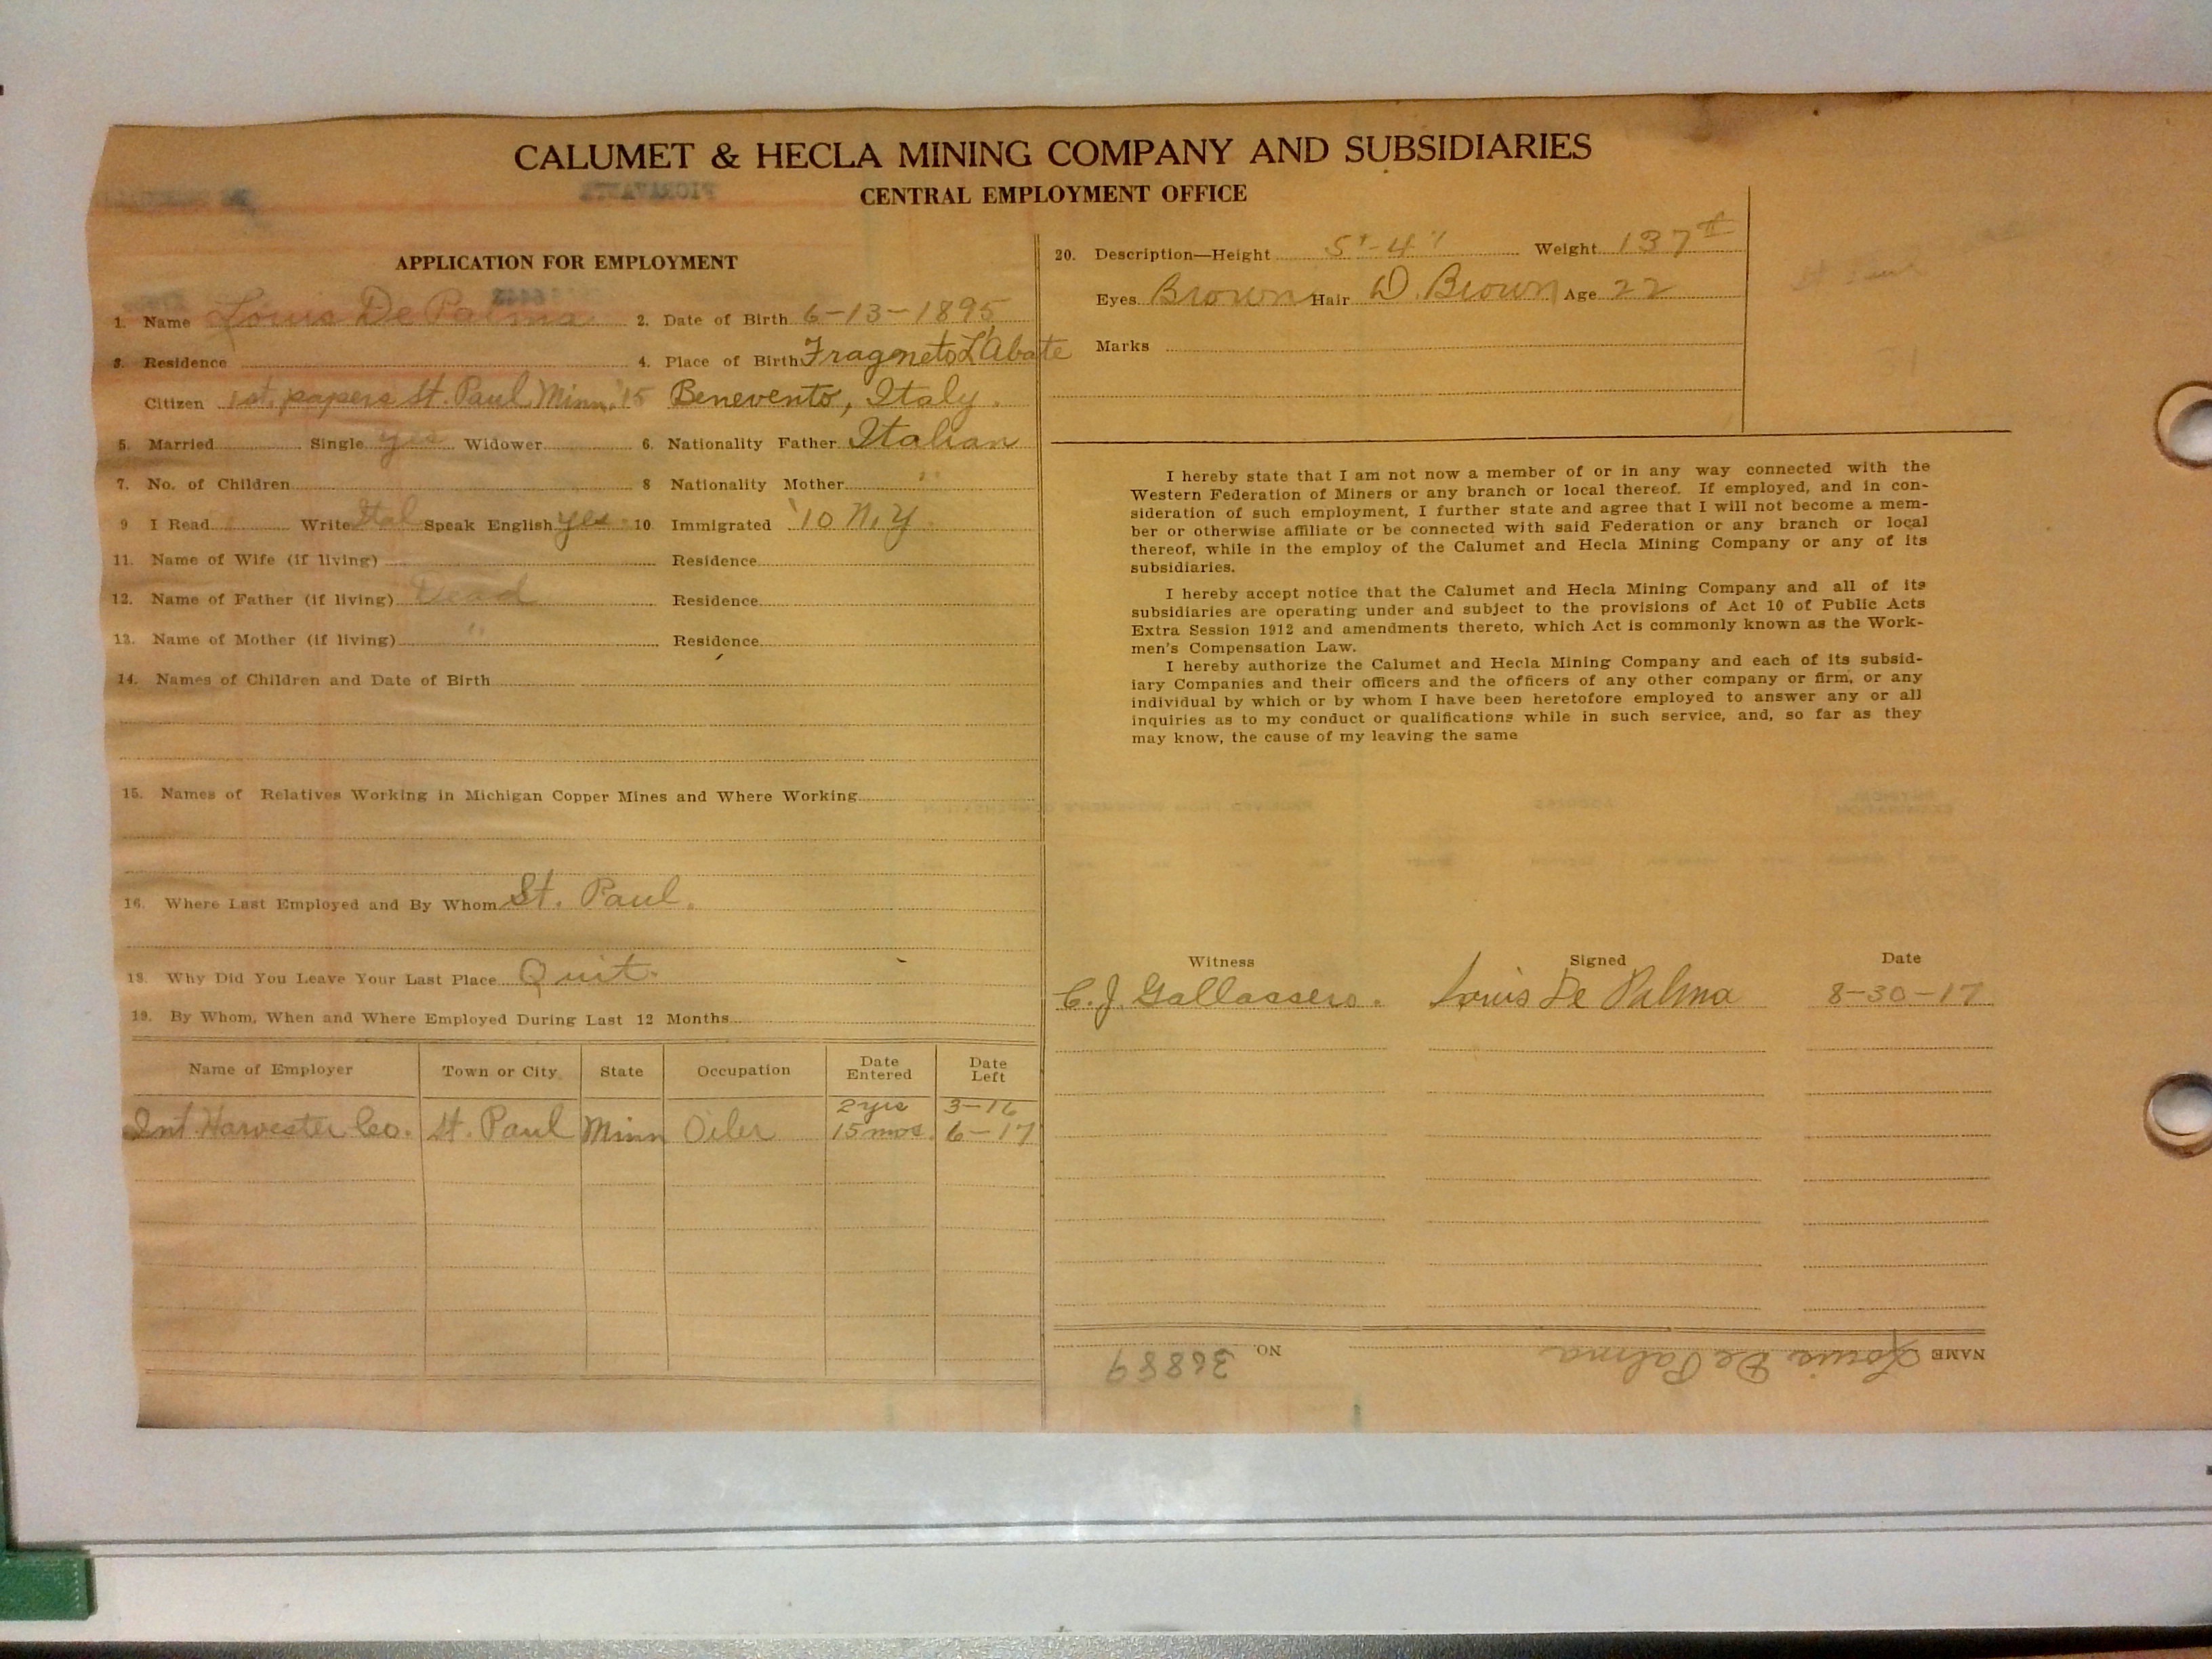 CALUMET & HECLA MINING COMPANY AND SUBSIDIARIES
CENTRAL EMPLOYMENT OFFICE
APPLICATION FOR EMPLOYMENT
1. Name Louis De Palma 2. Date of Birth 6-13-1895
3. Residence 4. Place of Birth Fragneto L'Abate
Citizen 1st. papers St. Paul Minn. '15 Benevento, Italy.
5. Married Single yes Widower 6. Nationality Father Italian
7. No. of Children 8 Nationality Mother "
9 I Read Write Ital Speak English yes 10. Immigrated '10 N.Y.
11. Name of Wife (if living) Residence
12. Name of Father (if living) Dead Residence
13. Name of Mother (if living) " Residence
14. Names of Children and Date of Birth
15. Names of Relatives Working in Michigan Copper Mines and Where Working
16. Where Last Employed and By Whom St. Paul.
18. Why Did You Leave Your Last Place Quit.
19. By Whom, When and Where Employed During Last 12 Months
Name of Employer Town or City State Occupation Date Entered Date Left
2 yrs 3-16
Int. Harvester Co. St. Paul Minn Oiler 15 mos. 6-17
20. Description—Height 5'-4" Weight 137#
Eyes Brown Hair D. Brown Age 22
Marks
I hereby state that I am not now a member of or in any way connected with the
Western Federation of Miners or any branch or local thereof. If employed, and in con-
sideration of such employment, I further state and agree that I will not become a mem-
ber or otherwise affiliate or be connected with said Federation or any branch or local
thereof, while in the employ of the Calumet and Hecla Mining Company or any of its
subsidiaries.
I hereby accept notice that the Calumet and Hecla Mining Company and all of its
subsidiaries are operating under and subject to the provisions of Act 10 of Public Acts
Extra Session 1912 and amendments thereto, which Act is commonly known as the Work-
men's Compensation Law.
I hereby authorize the Calumet and Hecla Mining Company and each of its subsid-
iary Companies and their officers and the officers of any other company or firm, or any
individual by which or by whom I have been heretofore employed to answer any or all
inquiries as to my conduct or qualifications while in such service, and, so far as they
may know, the cause of my leaving the same
Witness Signed Date
C. J. Gallassero. Louis De Palma 8-30-17
NAME Louis De Palma NO. 36889